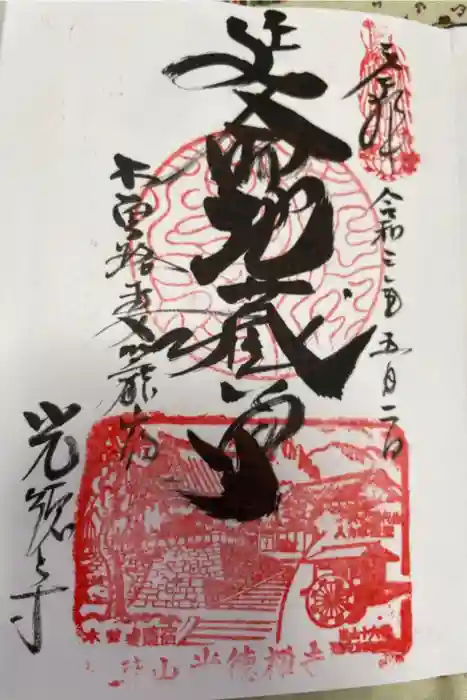 奉拝
令和三年五月二日
延命地蔵尊
木曽路妻籠宿
光徳寺
木曽妻籠宿
山 光徳禅寺